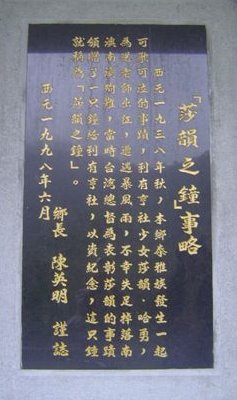 「莎韻之鐘」事略
西元一九三八年秋，本鄉泰雅族發生一起
可歌可泣的事蹟，利有亨社少女莎韻．哈勇，
為送老師出征，遭遇暴風雨，不幸失足摔落南
澳南溪殉難，當時台灣總督為表彰莎韻的事蹟
頒贈了一只鐘給利有亨社，以資紀念，這只鐘
就稱為「莎韻之鐘」。
鄉長 陳英明 謹誌
西元一九九八年六月